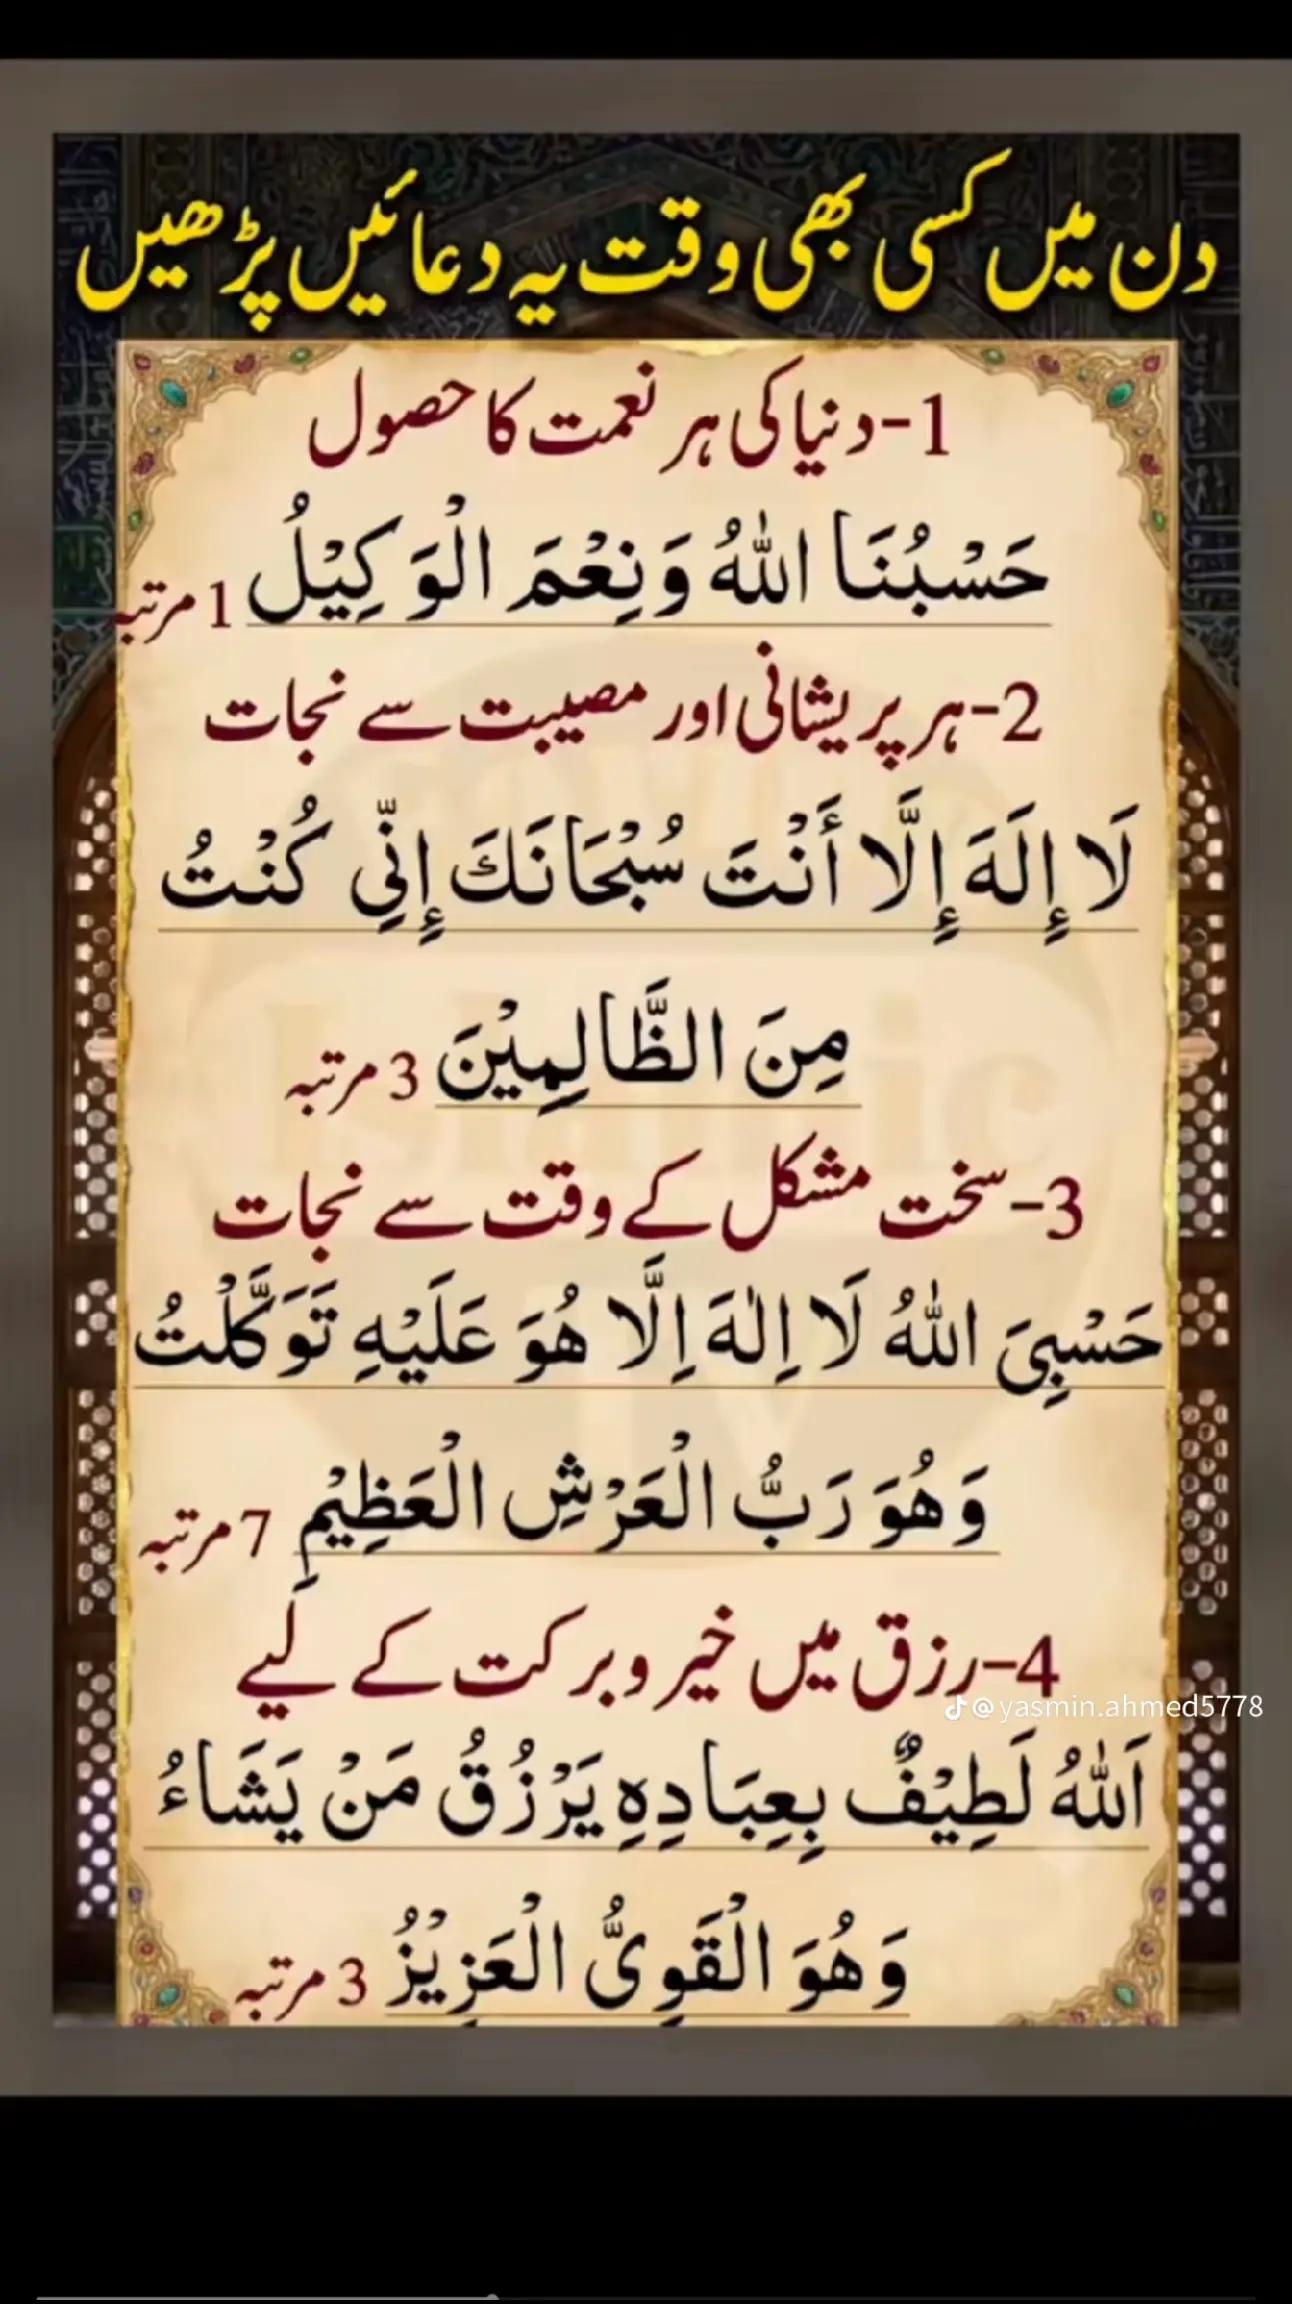 دن میں کسی بھی وقت یہ دعائیں پڑھیں
1-دنیا کی ہر نعمت کا حصول
حَسْبُنَا اللّٰهُ وَنِعْمَ الْوَكِيْلُ 1 مرتبہ
2-ہر پریشانی اور مصیبت سے نجات
لَا إِلَهَ إِلَّا أَنْتَ سُبْحَانَكَ إِنِّي كُنْتُ
مِنَ الظَّالِمِيْنَ 3 مرتبہ
3-سخت مشکل کے وقت سے نجات
حَسْبِیَ اللّٰهُ لَا اِلٰهَ اِلَّا هُوَ عَلَيْهِ تَوَكَّلْتُ
وَهُوَ رَبُّ الْعَرْشِ الْعَظِيْمِ 7 مرتبہ
4-رزق میں خیر و برکت کے لیے
@yasmin.ahmed5778
اَللّٰهُ لَطِيْفٌ بِعِبَادِهٖ يَرْزُقُ مَنْ يَشَاءُ
وَهُوَ الْقَوِیُّ الْعَزِيْزُ 3 مرتبہ